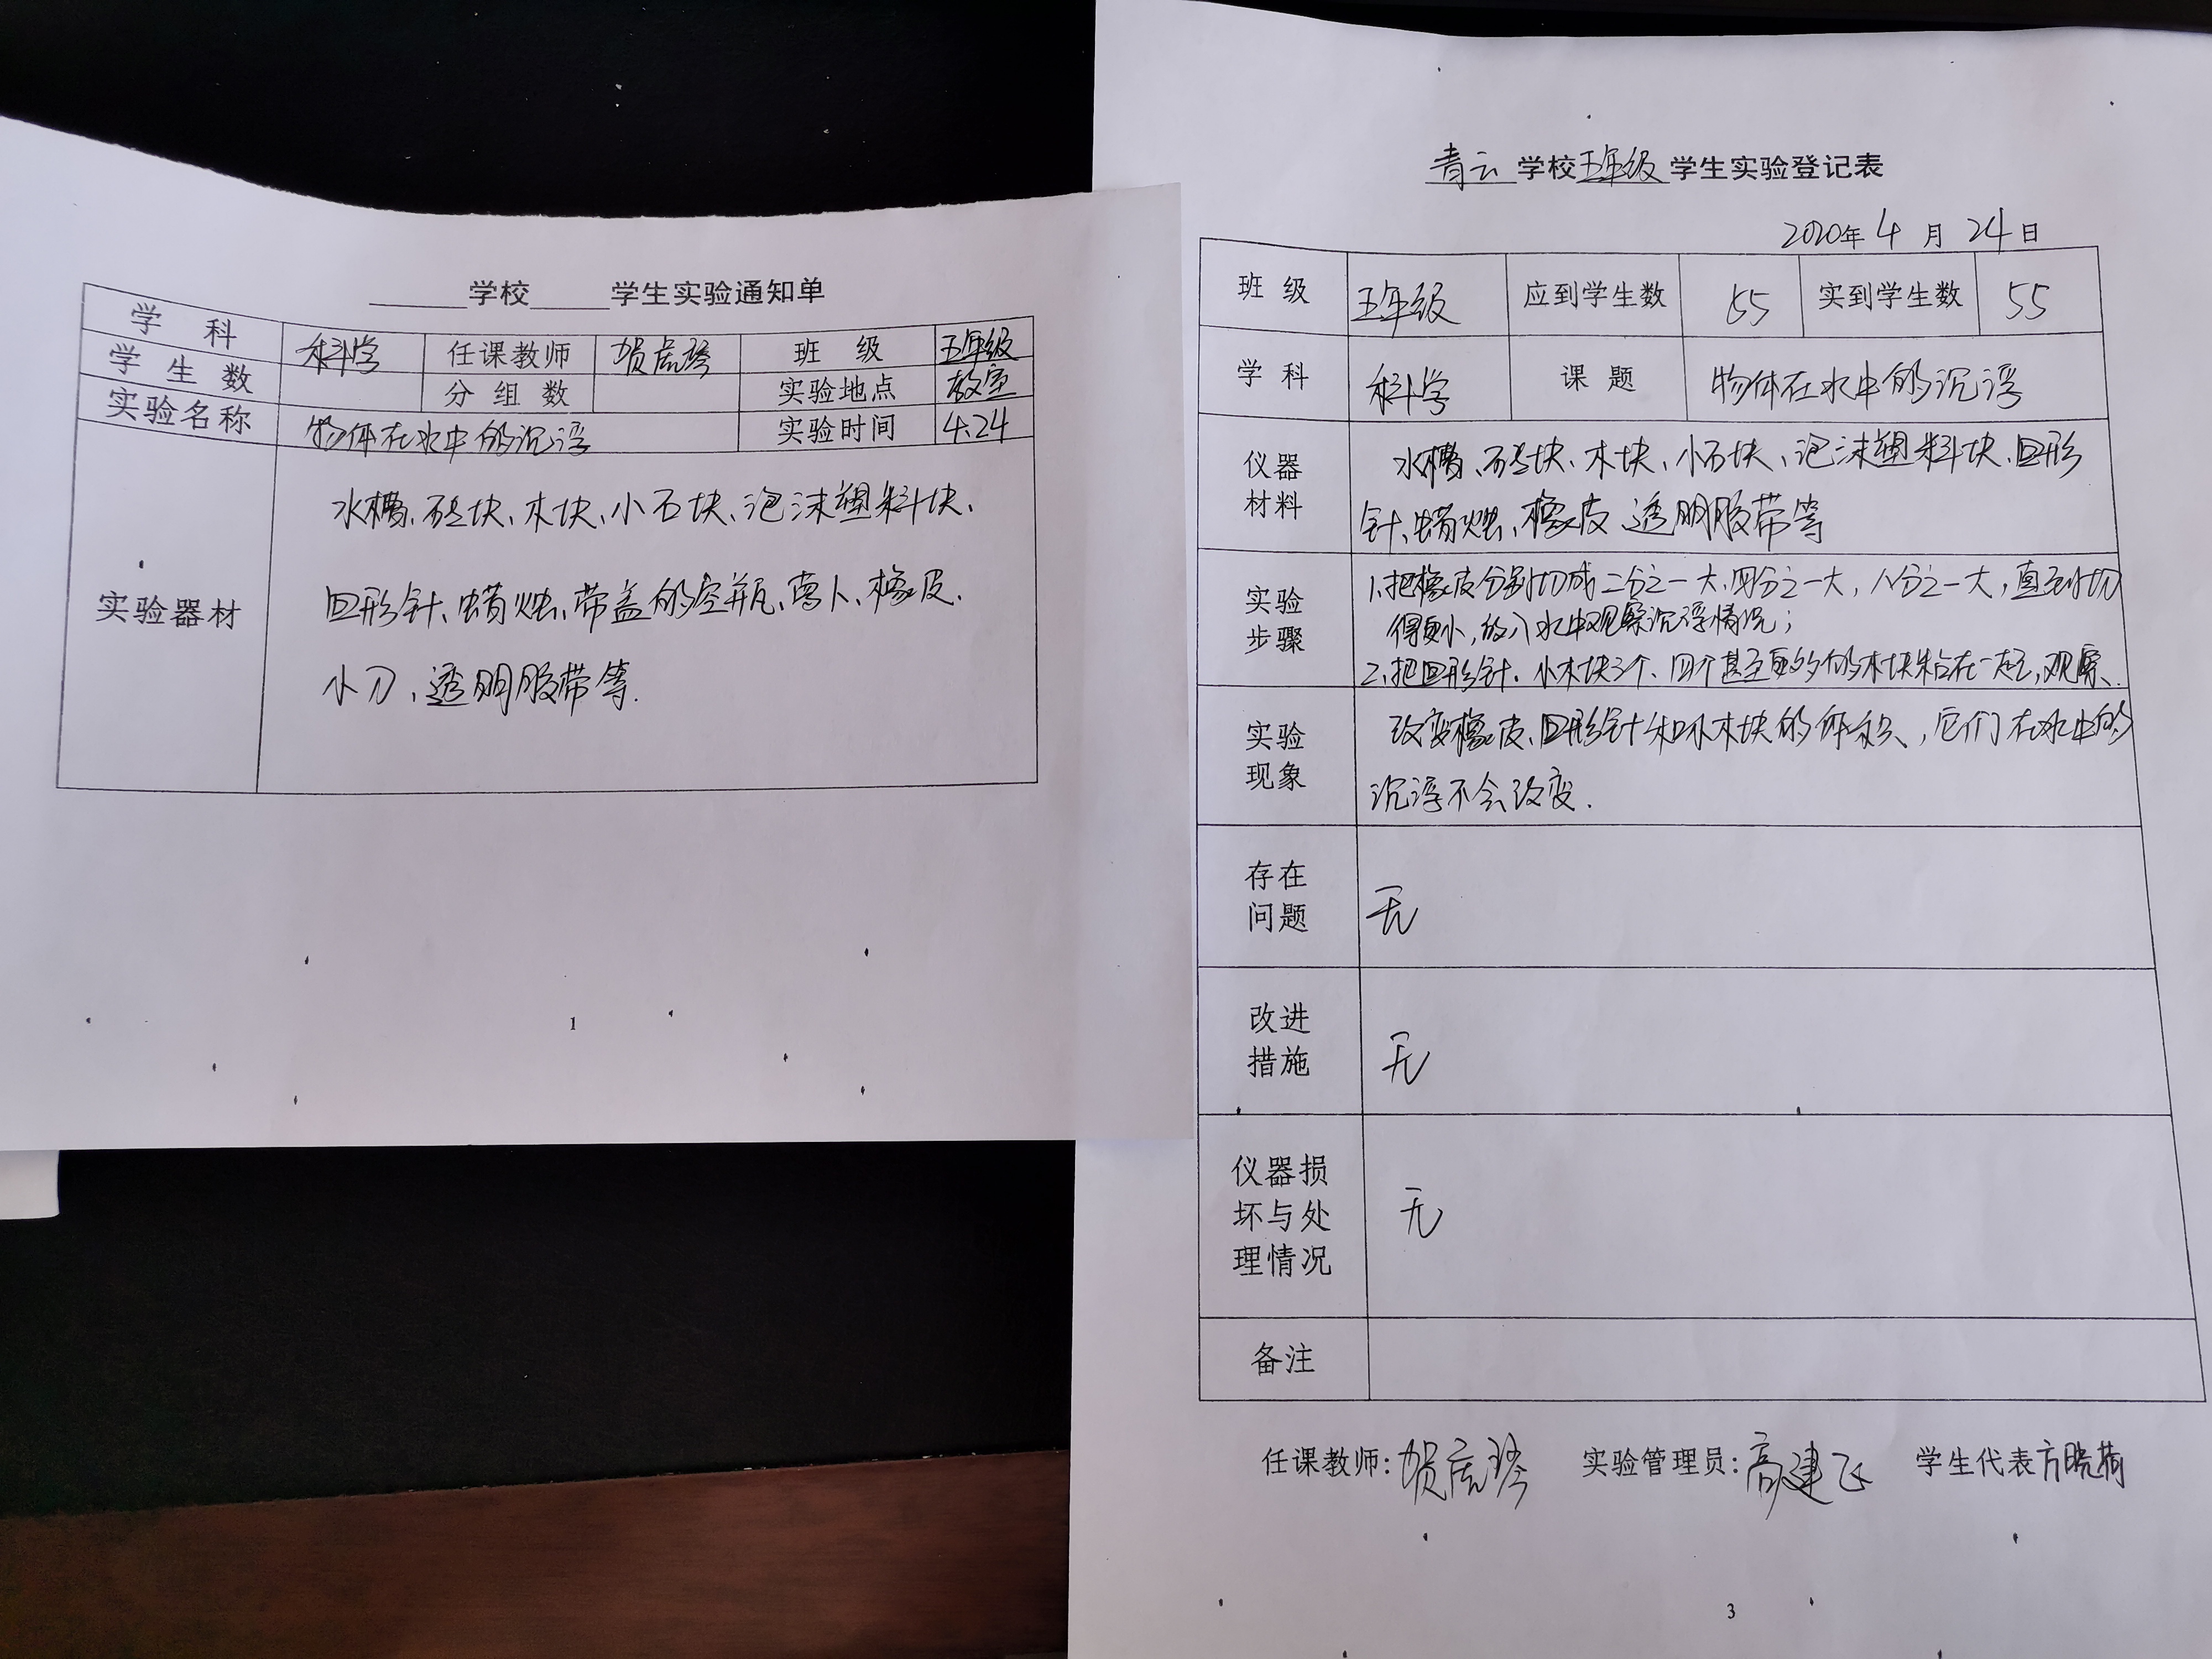 ______学校______学生实验通知单
学 科 科学 任课教师 贺虎琴 班 级 五年级
学生数 分组数 实验地点 教室
实验名称 物体在水中的沉浮 实验时间 4.24
实验器材
水槽、砖块、木块、小石块、泡沫塑料块、
回形针、蜡烛、带盖的空瓶、萝卜、橡皮、
小刀，透明胶带等.
1
青云学校五年级学生实验登记表
2020年4月24日
班 级 五年级 应到学生数 55 实到学生数 55
学 科 科学 课 题 物体在水中的沉浮
仪器材料
水槽、砖块、木块、小石块、泡沫塑料块、回形
针、蜡烛、橡皮 透明胶带等
实验步骤
1.把橡皮分别切成二分之一大,四分之一大,八分之一大,直到切
得更小,放入水中观察沉浮情况;
2.把回形针、小木块3个、四个甚至更多的木块粘在一起,观察.
实验现象
改变橡皮、回形针和小木块的体积,它们在水中的
沉浮不会改变.
存在问题
无
改进措施
无
仪器损坏与处理情况
无
备注
任课教师:贺虎琴 实验管理员:高建飞 学生代表方晓
3